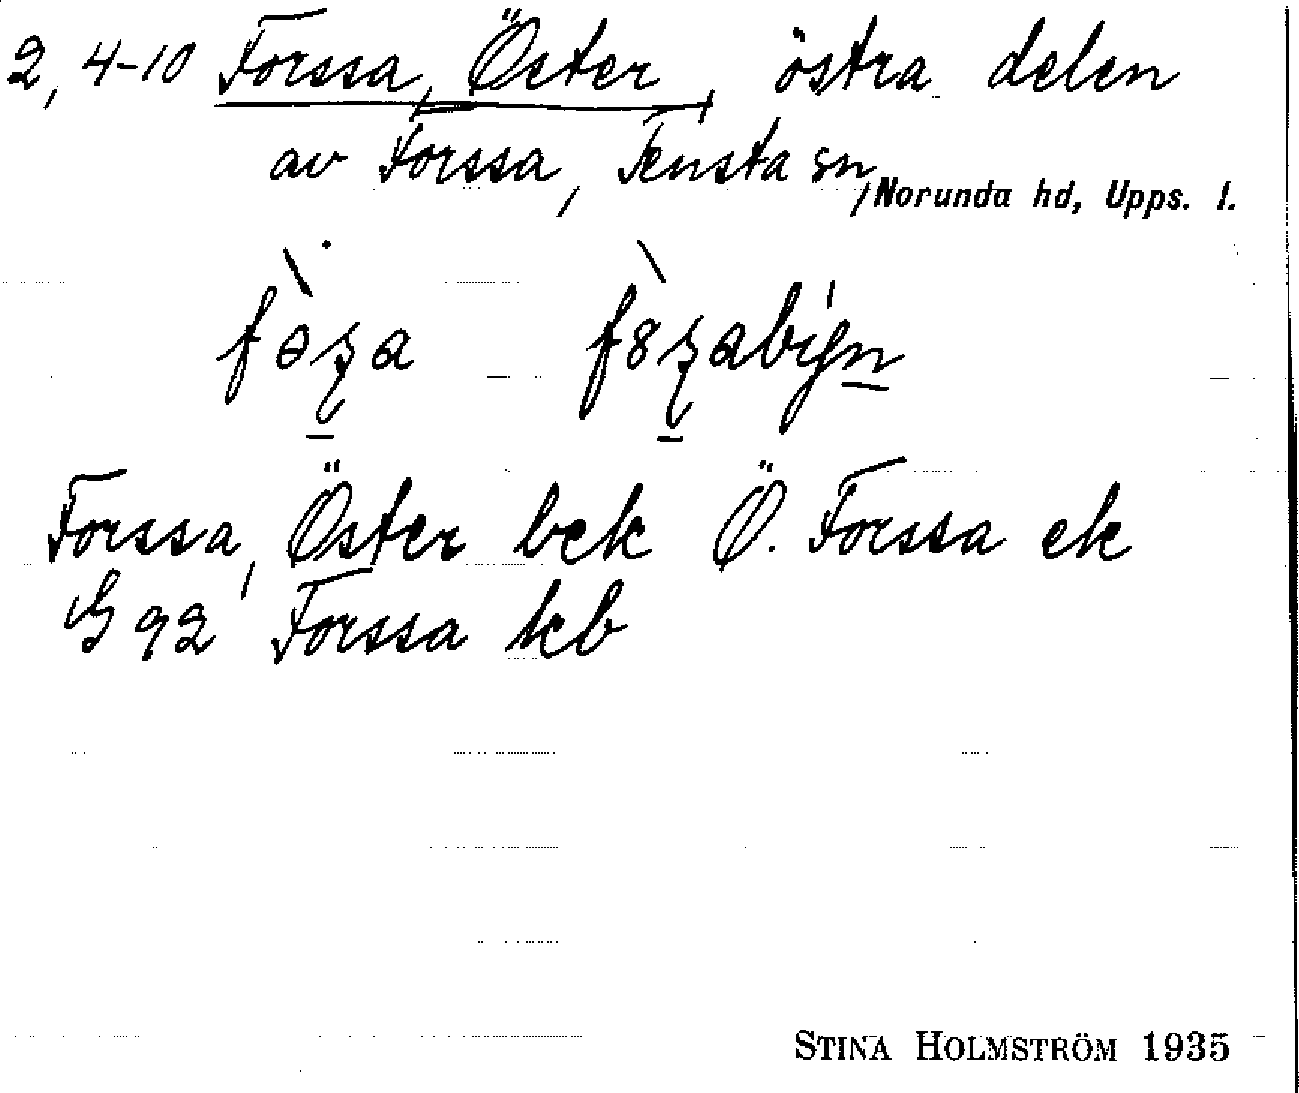 2, 4-10 Forssa, Öster, östra delen
av Forssa, Tensta sn, Norunda hd, Upps. l.
Forssa, Öster bek Ö. Forssa ek
G 92 Forssa kb
STINA HOLMSTRÖM 1935